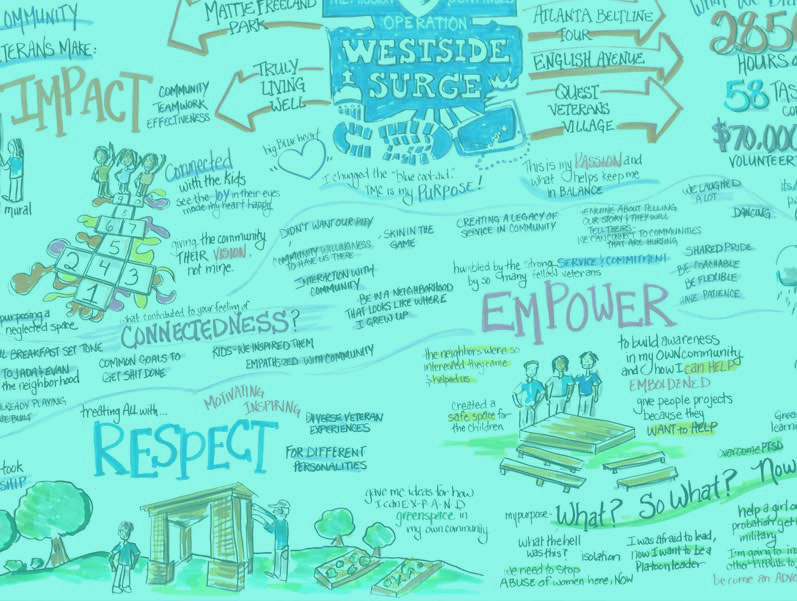 COMMUNITY
VETERANS MAKE:
IMPACT
COMMUNITY
TEAMWORK
EFFECTIVENESS
MATTIE FREELAND
PARK
TRULY
LIVING
WELL
OPERATION
WESTSIDE
SURGE
ATLANTA BELTLINE
TOUR
ENGLISH AVENUE
QUEST
VETERANS
VILLAGE
HOURS
58 TAS
$70,000
VOLUNTEER
mural
Connected
with the kids
see the JOY in their eyes
made my heart happy
giving the community
THEIR VISION,
not mine.
big blue heart
I chugged the "blue cool-aid."
TMC is my PURPOSE!
This is my PASSION and
what helps keep me
in BALANCE
1
2
4
3
5
6
7
8
DIDN'T WANT OUR PITY
COMMUNITY WILLINGNESS
TO HAVE US THERE
INTERACTION WITH
COMMUNITY
SKIN IN THE
GAME
BE IN A NEIGHBORHOOD
THAT LOOKS LIKE WHERE
I GREW UP
CREATING A LEGACY OF
SERVICE IN COMMUNITY
TELLING
OUR STORY & THEY WILL
TELL THEIRS
TO COMMUNITIES
THAT ARE HURTING
WE LAUGHED
A LOT
DANCING
SHARED PRIDE
BE COACHABLE
BE FLEXIBLE
HAVE PATIENCE
humbled by the strong SERVICE & COMMITMENT
by so many fellow veterans
EMPOWER
purposing a
neglected space
what contributed to your feeling of
CONNECTEDNESS?
BREAKFAST SET TONE
TO JADA & EVAN
the neighborhood
ALREADY PLAYING
WE BUILT
COMMON GOALS TO
GET SHIT DONE
KIDS - WE INSPIRED THEM
EMPATHIZED WITH COMMUNITY
the neighbors were so
interested they came
& helped us
created a
safe space for
the children
to build awareness
in my OWN community
and how I can HELP
EMBOLDENED
give people projects
because they
WANT to HELP
treating All with...
MOTIVATING
INSPIRING
RESPECT
DIVERSE VETERAN
EXPERIENCES
FOR DIFFERENT
PERSONALITIES
took
SHIP
gave me ideas for how
I can E·X·P·A·N·D
greenspace in
my own community
my purpose -
What? So What? Now
overcome PTSD
what the hell
was this?
isolation
we need to STOP
ABUSE of women here, NOW
I was afraid to lead,
now I want to be a
Platoon leader
help a girl on
probation get
military
I'm going to
become an ADVO